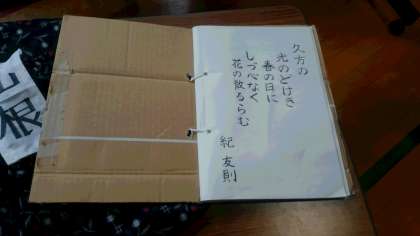 久方の
光のどけき
春の日に
しづ心なく
花の散るらむ
紀 友則